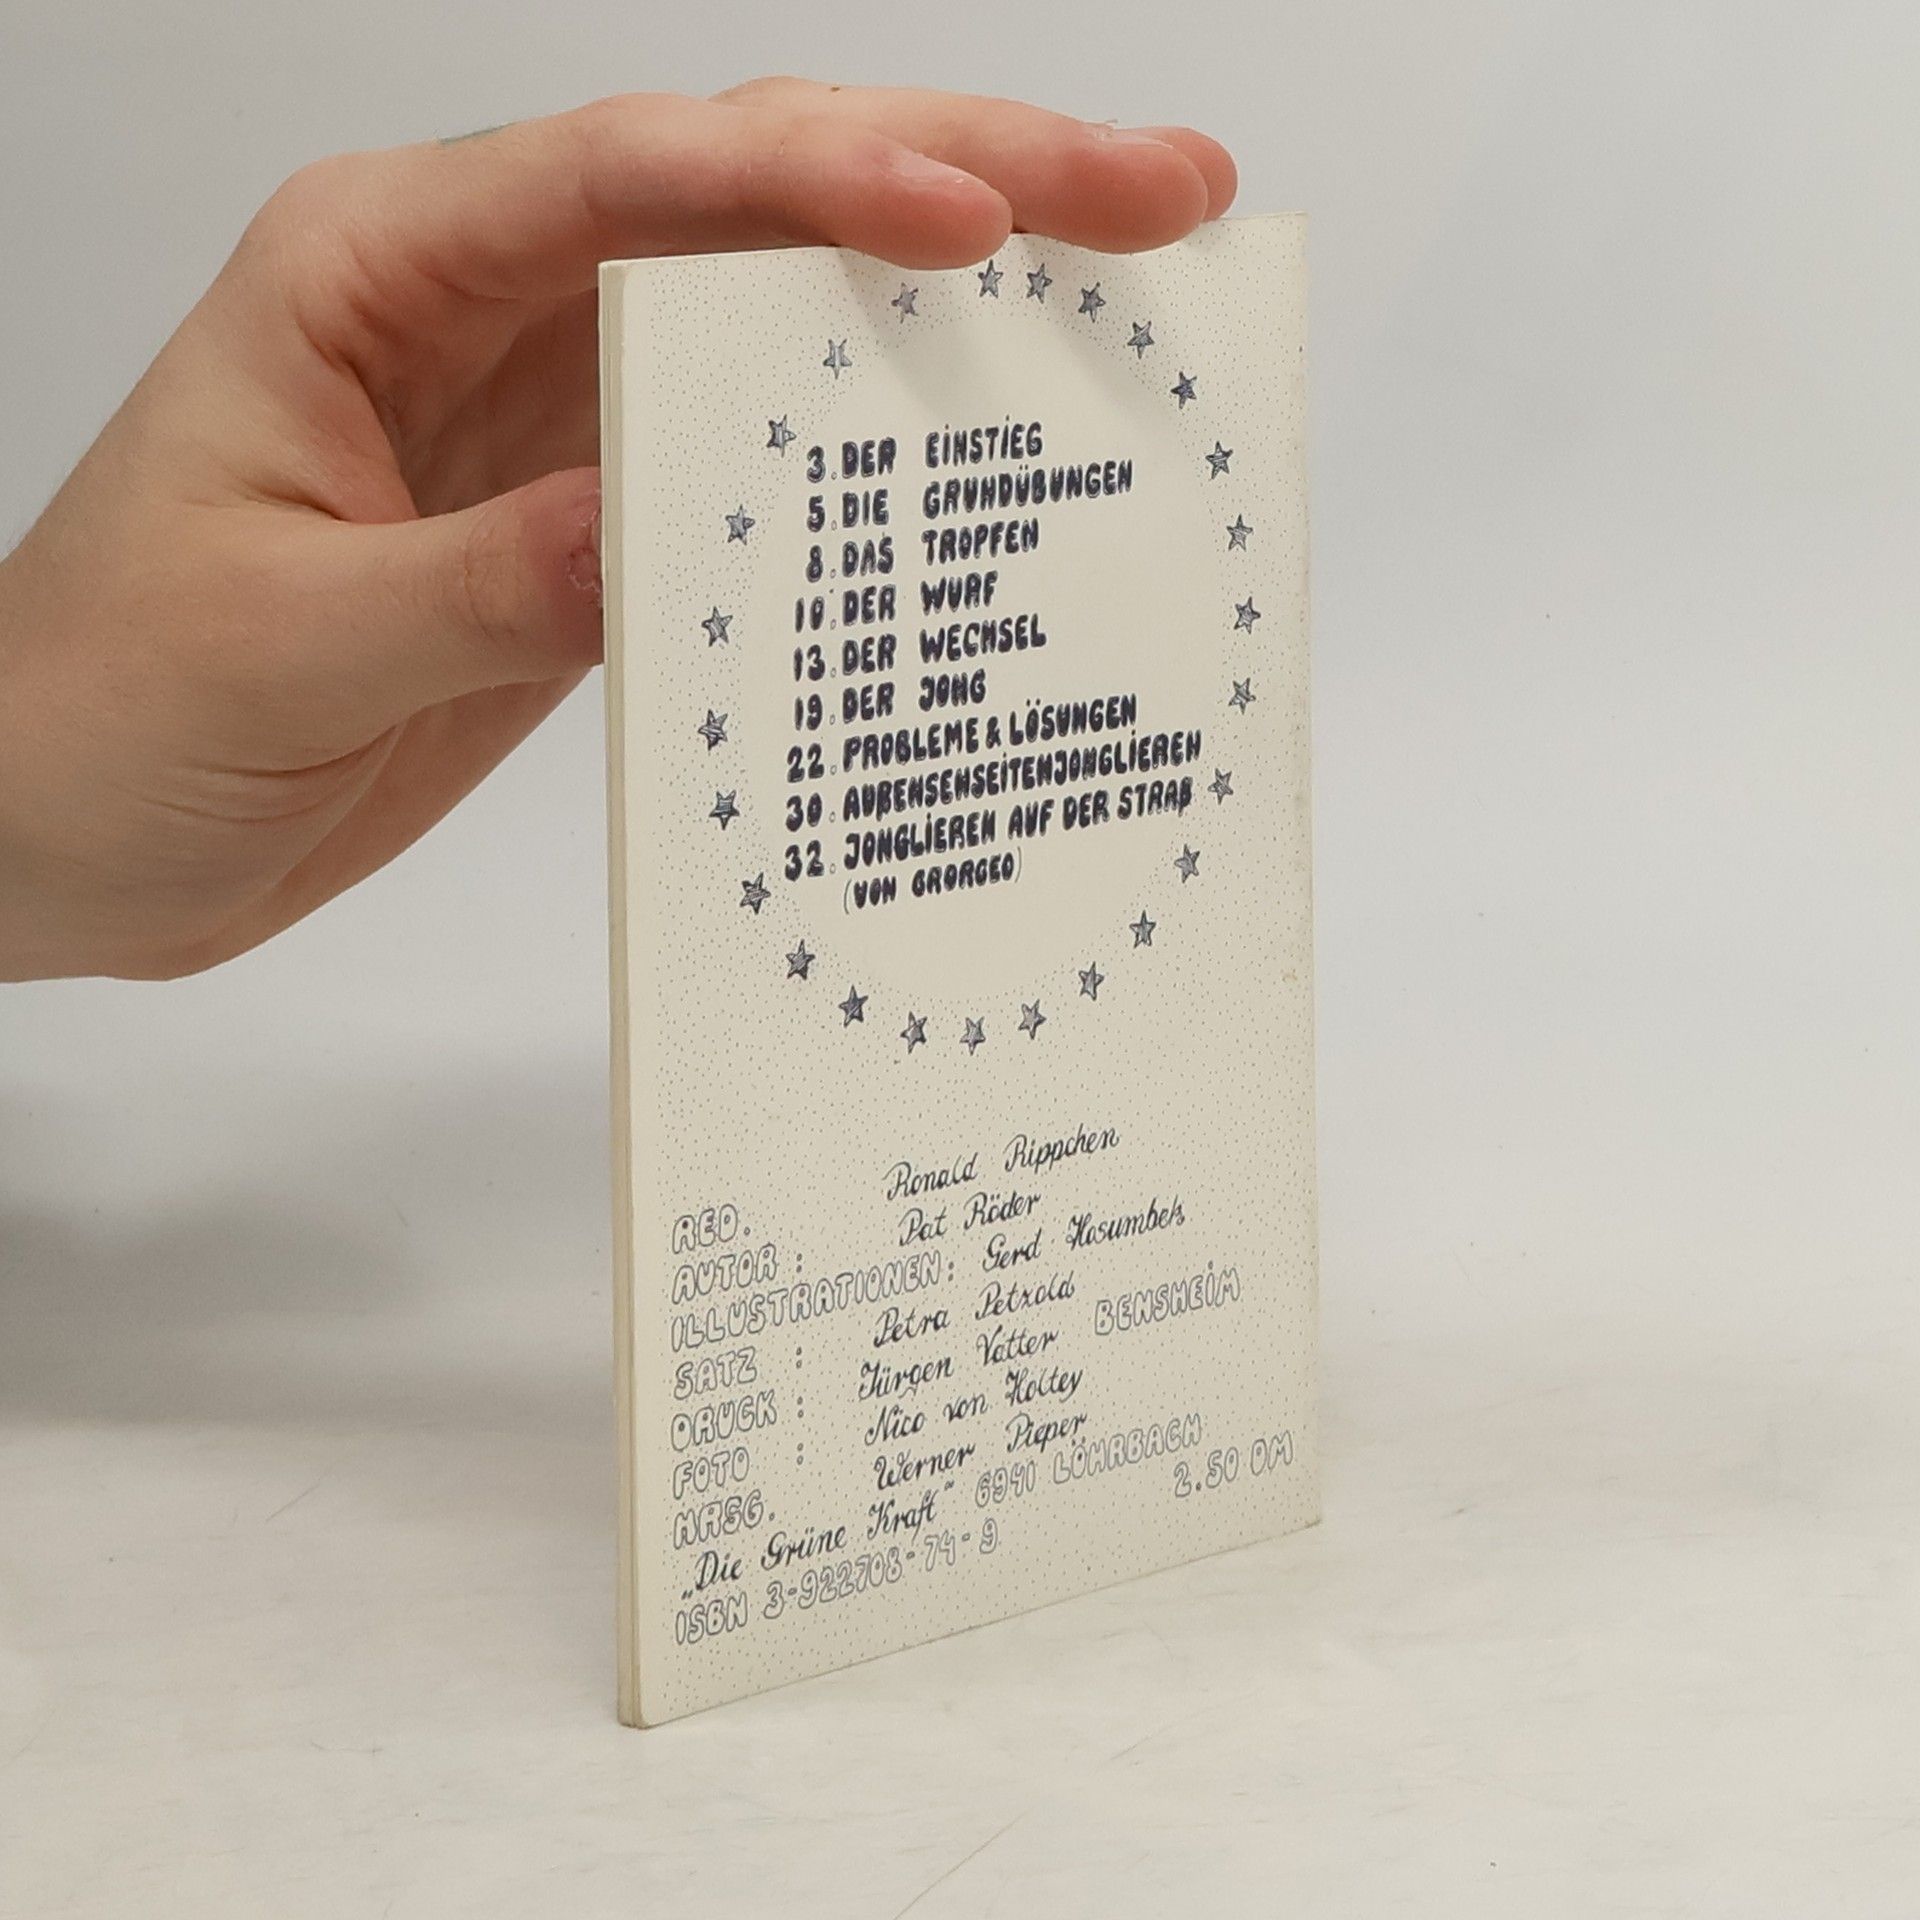 3. DER EINSTIEG
5. DIE GRUNDÜBUNGEN
8. DAS TROPFEN
10. DER WURF
13. DER WECHSEL
19. DER JONG
22. PROBLEME & LÖSUNGEN
30. AUßENSENSEITENJONGLIEREN
32. JONGLIEREN AUF DER STRAß
(VON GRORGEO)
RED. Ronald Rippchen
AUTOR : Pat Röder
ILLUSTRATIONEN : Gerd
SATZ : Petra Petzold
DRUCK : Jürgen Vatter BENSHEIM
FOTO : Nico von Holtey
HRSG. Werner Pieper
„Die Grüne Kraft“ 6941 LÖHRBACH
ISBN 3-922708-74-9 2.50 DM